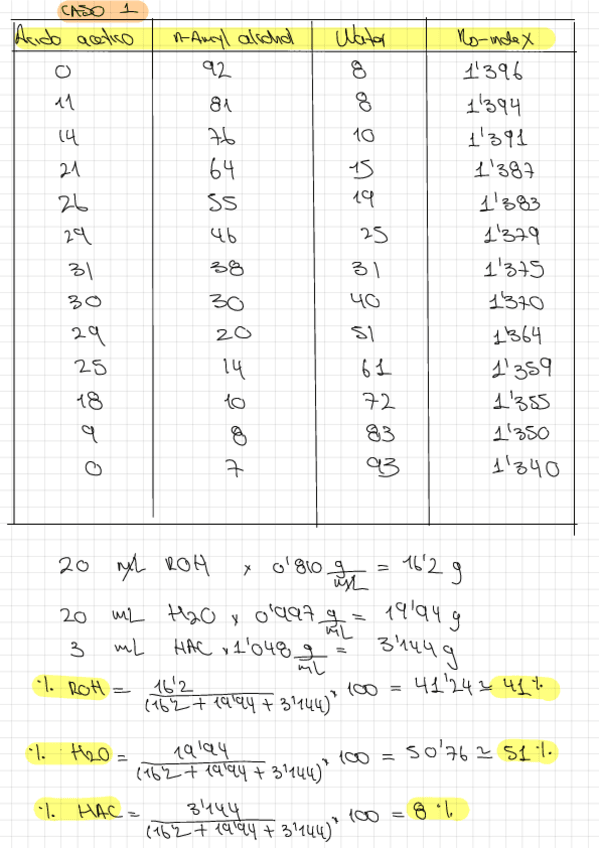 CASO 1
Ácido acético n-Amyl alcohol Water No-index
0 92 8 1'396
11 81 8 1'394
14 76 10 1'391
21 64 15 1'387
26 55 19 1'383
29 46 25 1'379
31 38 31 1'375
30 30 40 1'370
29 20 51 1'364
25 14 61 1'359
18 10 72 1'355
9 8 83 1'350
0 7 93 1'340
20 mL ROH × 0'810 g/mL = 16'2 g
20 mL H2O × 0'997 g/mL = 19'94 g
3 mL HAC × 1'048 g/mL = 3'144 g
% ROH = 16'2 / (16'2 + 19'94 + 3'144) * 100 = 41'24 ≃ 41 %
% H2O = 19'94 / (16'2 + 19'94 + 3'144) * 100 = 50'76 ≃ 51 %
% HAC = 3'144 / (16'2 + 19'94 + 3'144) * 100 = 8 %